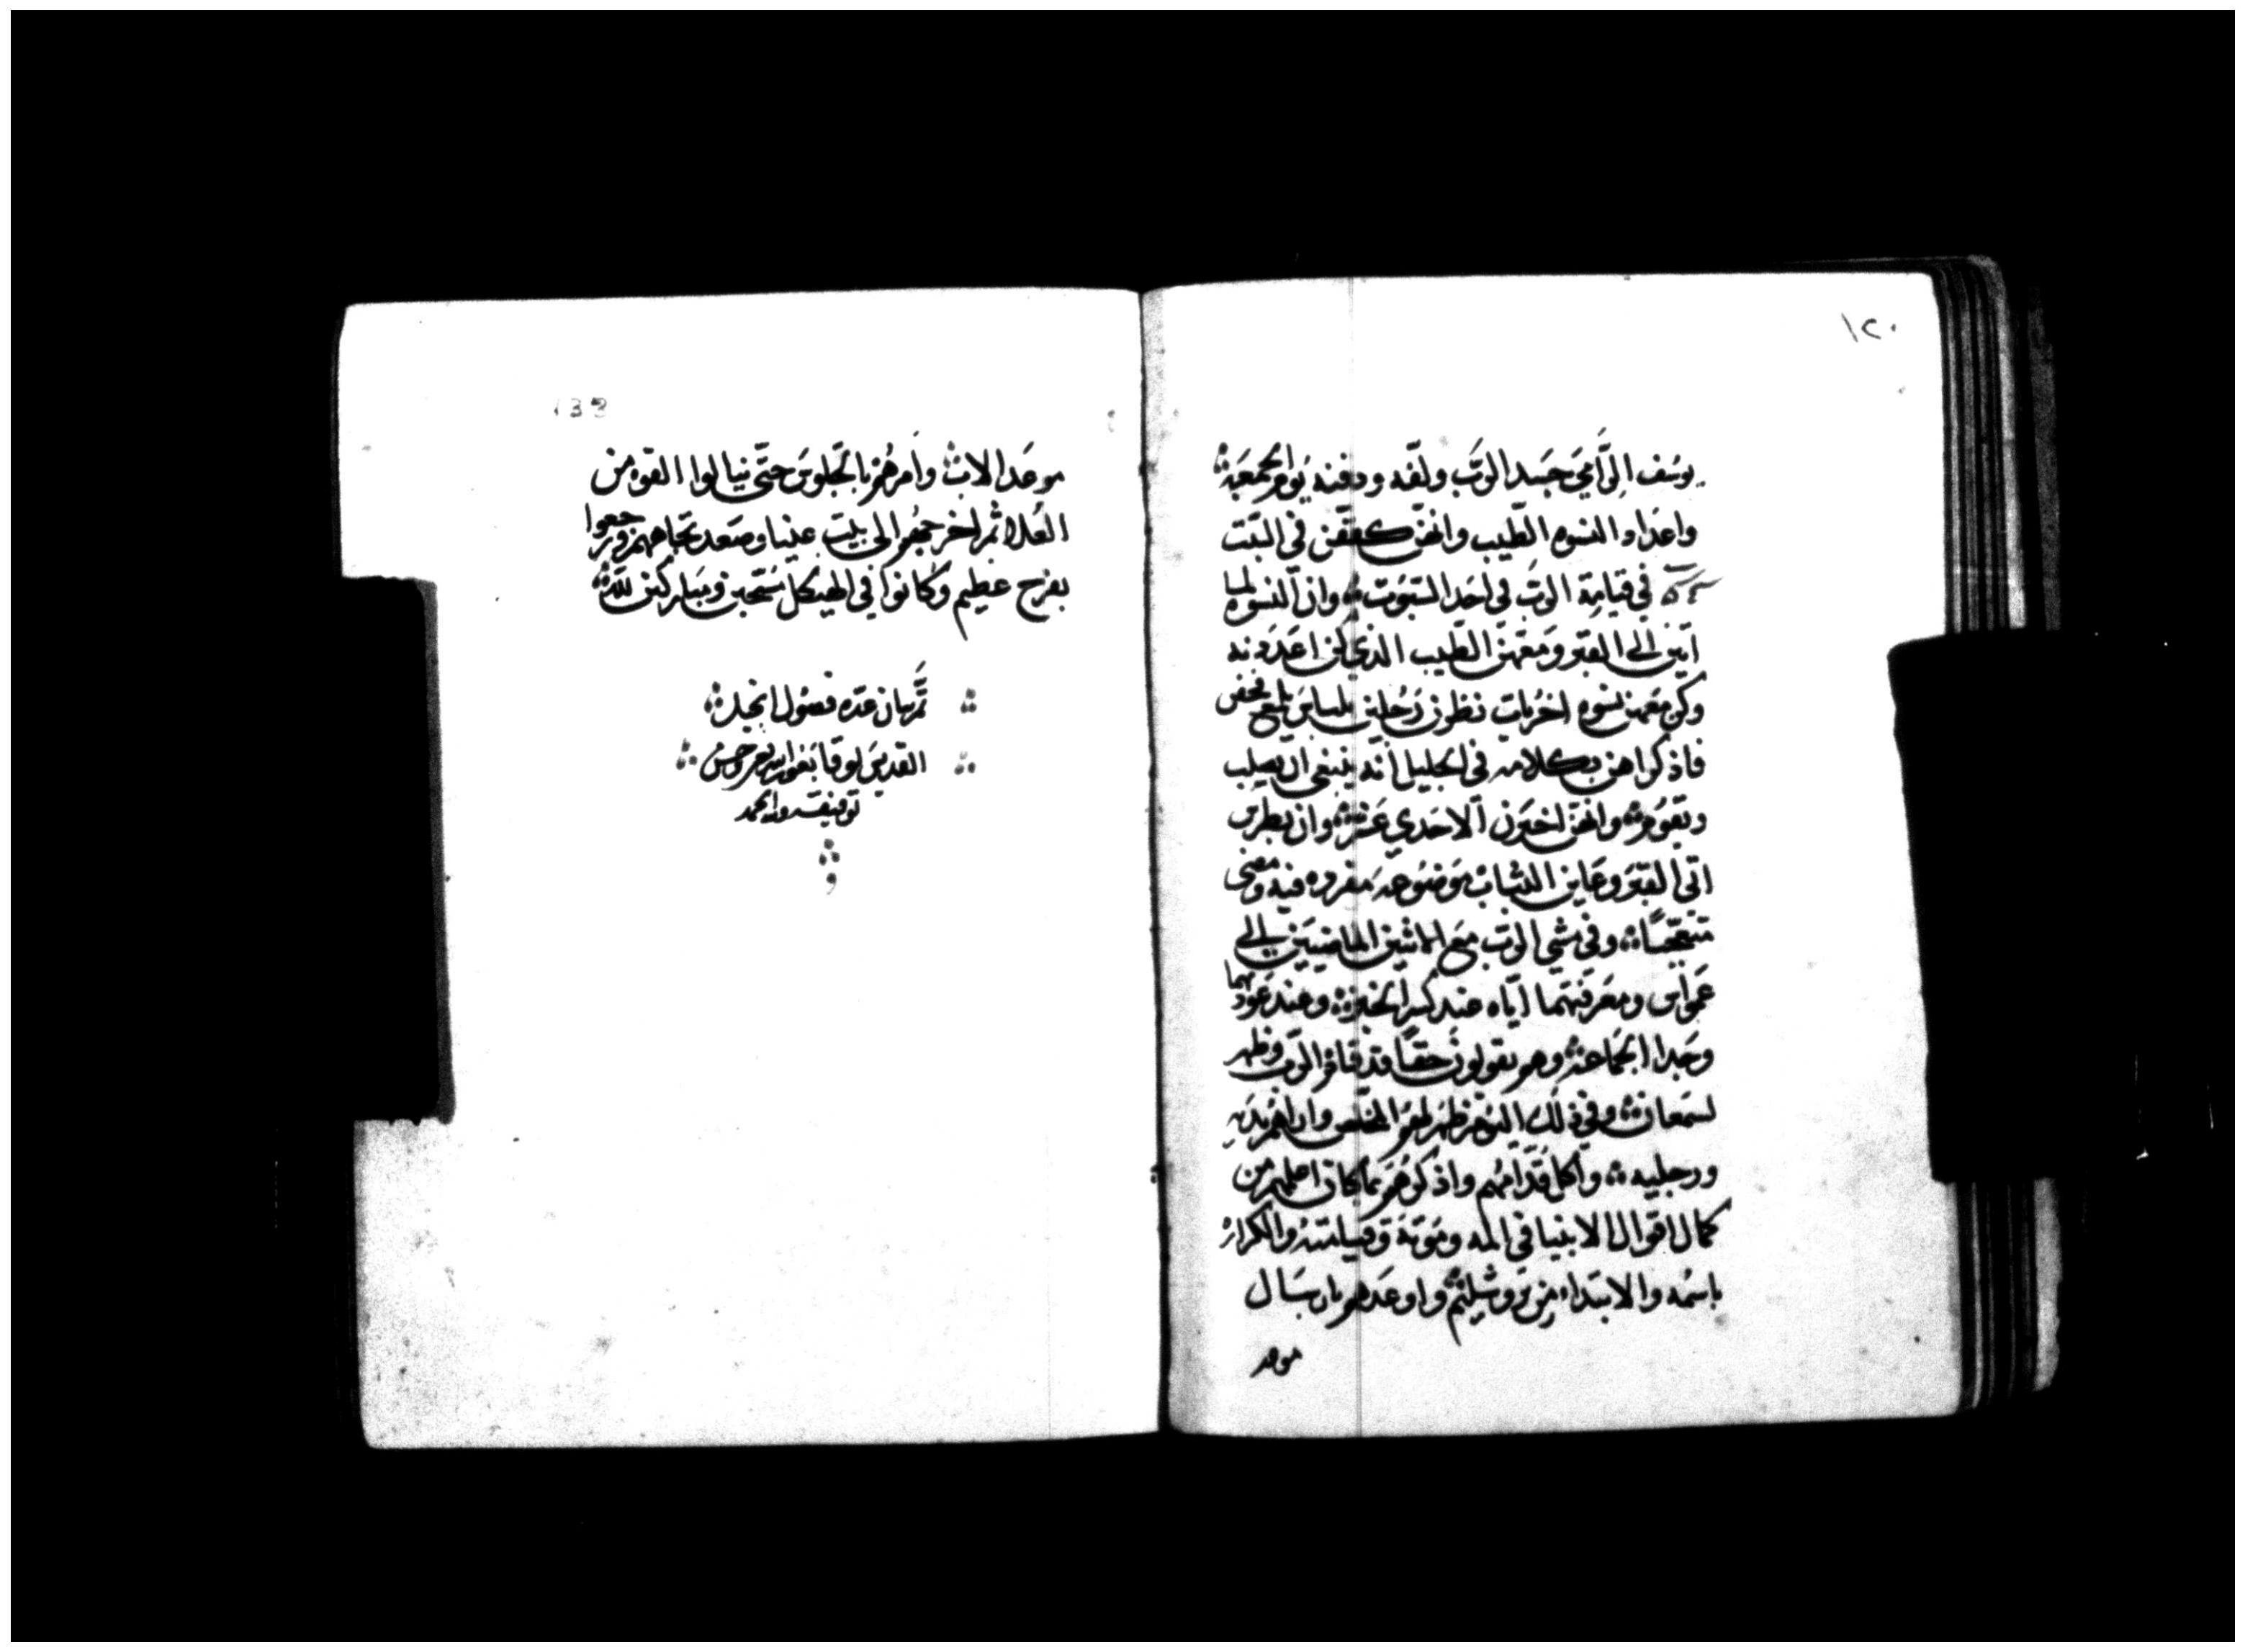 ١٢٠
يوسف الرامي جسد الرب ولفه ودفنه يوم الجمعة
واعداد النسوه الطيب وانهن كففن في السبت
في قيامة الرب في احد السبوت وان النسوه لما
اتين الى القبر ومعهن الطيب الذي كن اعددنه
وكن معهن نسوه اخريات نظرن رجلين بلباس يلمع
فاذكراهن بكلامه في الجليل انه ينبغي ان يصلب
ويقوم وانهن اخبرن الاحدي عشر وان بطرس
اتى القبر وعاين الثياب موضوعه مفرده فيه ومضى
متعجبًا وفي مشي الرب مع الماضيين الى
عمواس ومعرفتهما اياه عند كسر الخبز وعند عودهما
وجدا الجماعة وهم يقولون حقًا قد قام الرب وظهر
لسمعان وفي ذلك اليوم ظهر لهم المخلص واراهم يديه
ورجليه واكل قدامهم واذكرهم بما كان اعلمهم من
كمال اقوال الانبيا في المه وموته وقيامته والكرازه
باسمه والابتداء من يروشليم واوعدهم بارسال
موعد
133
موعد الاب وامرهم بالجلوس حتى ينالوا القوه من
العلا ثم اخرجهم الى بيت عنيا وصعد تجاههم ورجعوا
بفرح عظيم وكانوا في الهيكل مسبحين ومباركين لله
تم بيان عدة فصول انجيل
القديس لوقا بعون الله وحسن
توفيقه والحمد